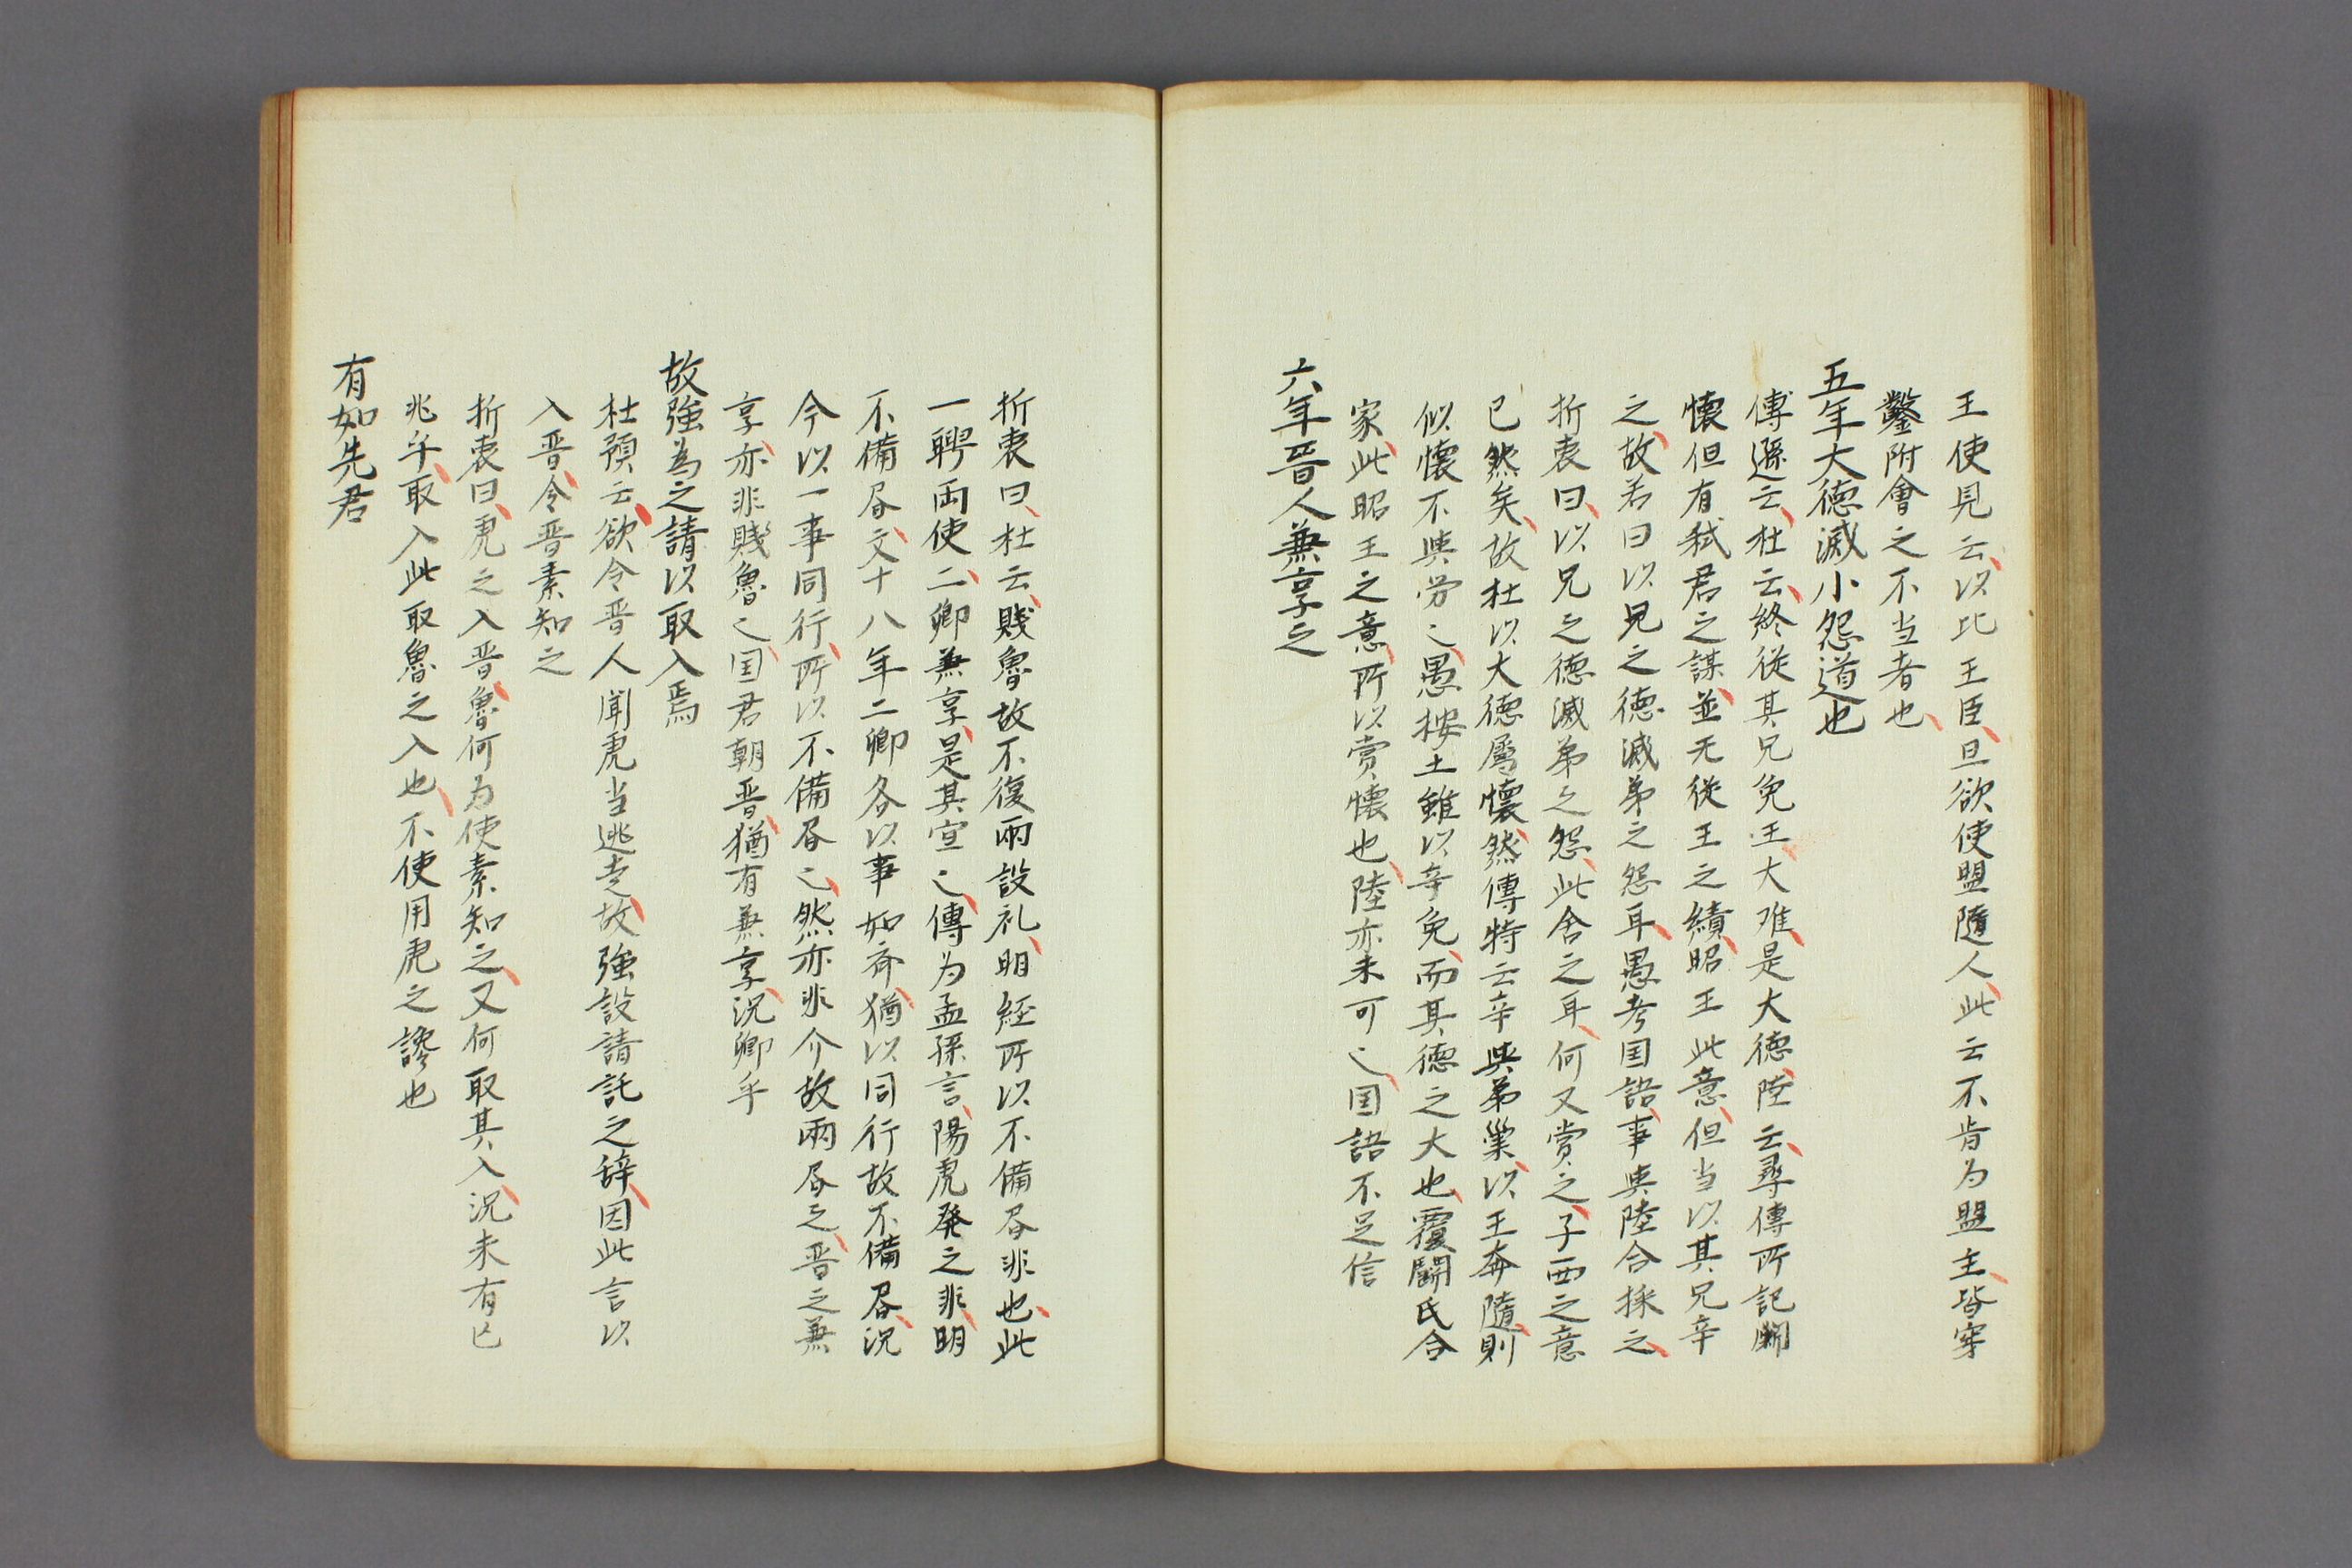 王使見云以比王臣旦欲使盟隨人此云不肯为盟主皆穿
鑿附會之不当者也
五年大德滅小怨道也
傅遜云杜云終従其兄免王大难是大德陸云尋傳所記闘
懐但有弑君之謀並无従王之績昭王此意但当以其兄辛
之故若曰以兄之德滅弟之怨耳愚考国語事與陸合採之
折衷曰以兄之德滅弟之怨此舍之耳何又賞之子西之意
已然矣故杜以大德属懐然傳特云辛與弟巣以王奔隨則
似懐不與労之愚按土雖以辛免而其德之大也覆闘氏合
家此昭王之意所以賞懐也陸亦未可之国語不足信
六年晋人兼享之
折衷曰杜云賤魯故不復兩設礼明経所以不備昏非也此
一聘両使二卿兼享是其宣之傳为孟孫言陽虎発之非明
不備昏文十八年二卿各以事如斉猶以同行故不備昏況
今以一事同行所以不備昏之然亦非介故兩昏之晋之兼
享亦非賤魯之国君朝晋猶有兼享況卿乎
故強為之請以取入焉
杜預云欲令晋人聞虎当逃走故強設請託之辞因此言以
入晋令晋素知之
折衷曰虎之入晋魯何为使素知之又何取其入況未有已
兆乎取入此取魯之入也不使用虎之謬也
有如先君